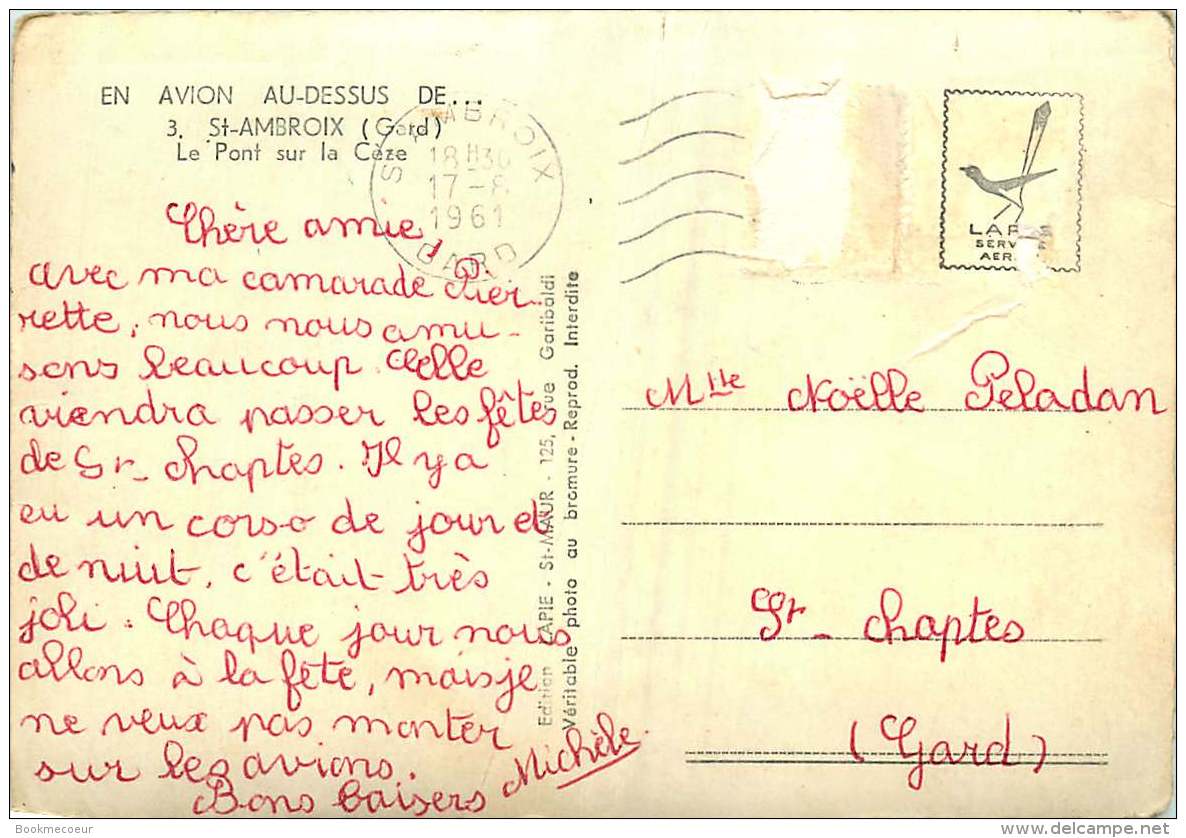 EN AVION AU-DESSUS DE...
3. St-AMBROIX (Gard)
Le Pont sur la Cèze
ST AMBROIX
18H30
17-8
1961
GARD
Chère amie,
avec ma camarade Pier-
rette, nous nous amu-
sons beaucoup. Elle
viendra passer les fêtes
de Gr- Chaptes. Il y a
eu un corso de jour et
de nuit, c'était très
joli. Chaque jour nous
allons à la fête, mais je
ne veux pas monter
sur les avions.
Bons baisers
Michèle.
Edition LAPIE - St-MAUR - 125, rue Garibaldi
Véritable photo au bromure - Reprod. Interdite
LAPIE
SERVICE
AER.
Mlle Noëlle Peladan
Gr- Chaptes
(Gard)
Bookmecoeur
http://bookmecoeur.delcampe.net